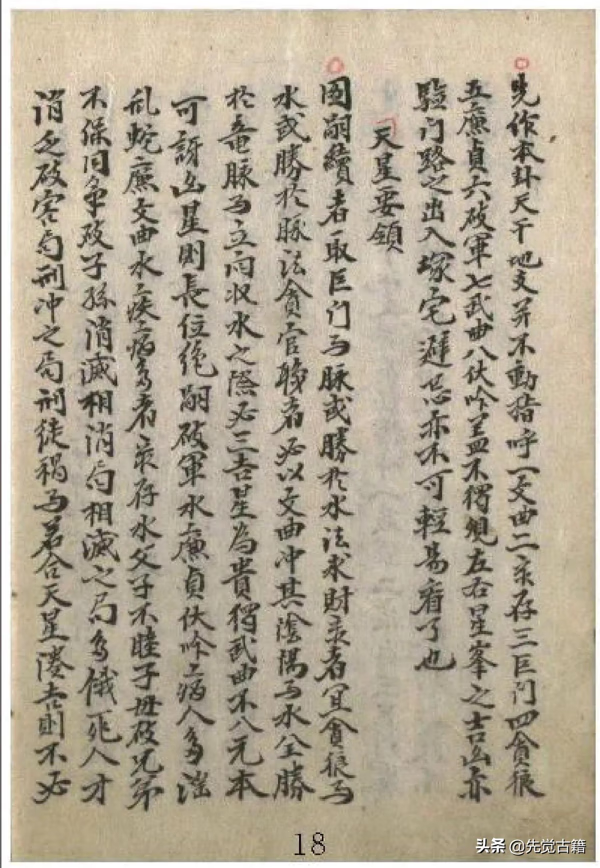 先作本卦天干地支并不動指呼一文曲二彔存三巨门四貪狼
五廉貞六破軍七武曲八伏吟盖不獨覌左右星峯之吉凶亦
驗门路之出入塚宅避忌亦不可輕易看了也
天星要領
囯嗣續者取巨门与脉或勝於水法求財彔者宜貪狼与
水或勝於脉法貪官職者必以文曲冲其陰陽与水全勝
於龍脉与立向収水之際必三吉星為貴獨武曲不八元本
可訝凶星則長位绝嗣破軍水廉貞伏吟病人多淫
乱蛇廉文曲水疾病多者彔存水父子不睦子毋破兄弟
不保同争破子孫消滅相消局相滅之局多餓死人才
消乏破害局刑冲之局刑徒禍与若合天星湊吉則不必
18
头条 @先觉古籍